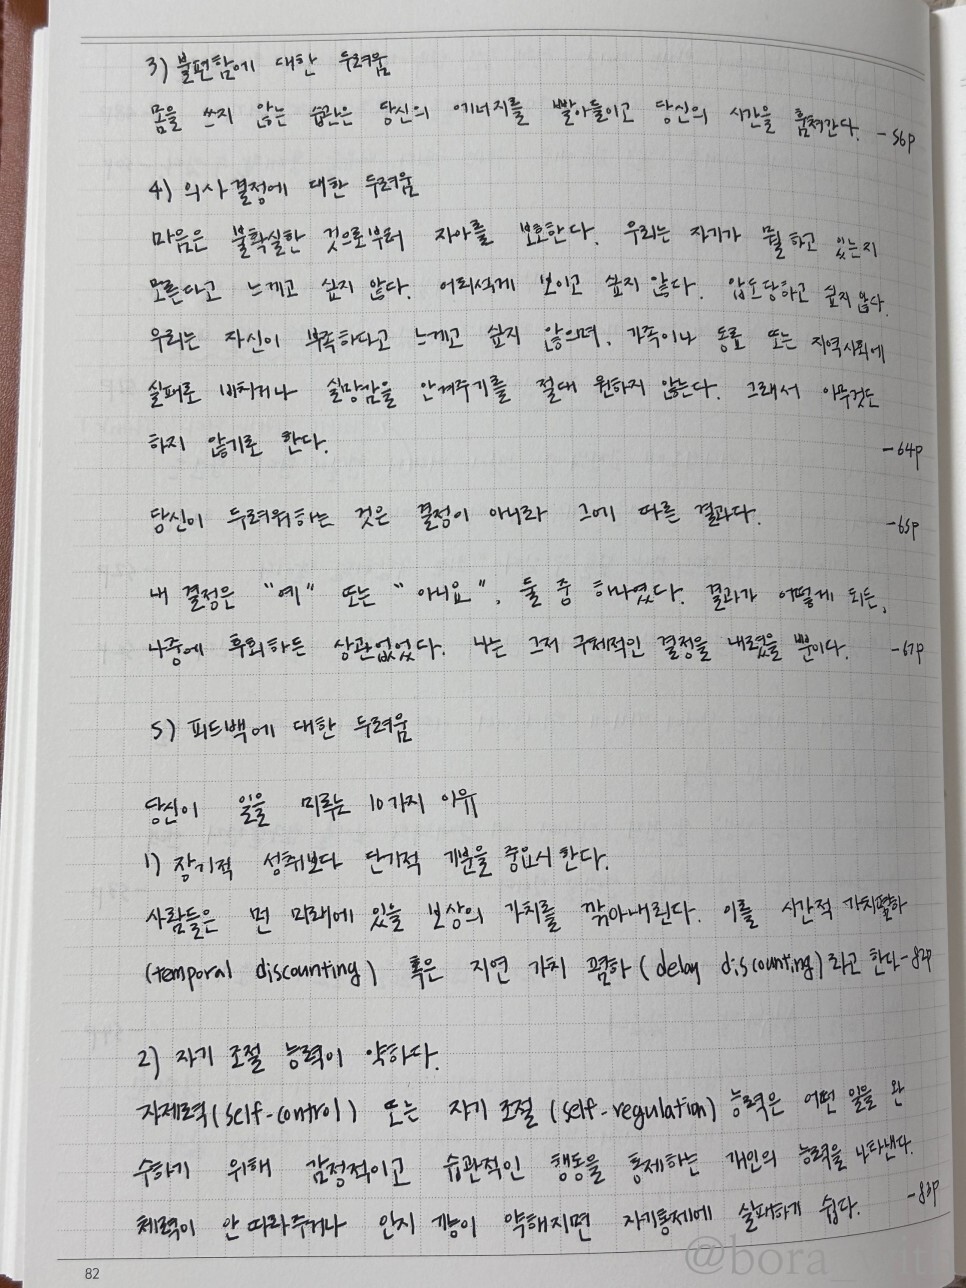 3) 불편함에 대한 두려움
몸을 쓰지 않는 습관은 당신의 에너지를 빨아들이고 당신의 시간을 훔쳐간다. -56p
4) 의사결정에 대한 두려움
마음은 불확실한 것으로부터 자아를 보호한다. 우리는 자기가 뭘 하고 있는지
모른다고 느끼고 싶지 않다. 어리석게 보이고 싶지 않다. 압도당하고 싶지 않다.
우리는 자신이 부족하다고 느끼고 싶지 않으며, 가족이나 동료 또는 지역사회에
실패로 비치거나 실망감을 안겨주기를 절대 원하지 않는다. 그래서 아무것도
하지 않기로 한다. -64p
당신이 두려워하는 것은 결정이 아니라 그에 따른 결과다. -65p
내 결정은 "예" 또는 "아니요", 둘 중 하나였다. 결과가 어떻게 되든,
나중에 후회하든 상관없었다. 나는 그저 구체적인 결정을 내렸을 뿐이다. -67p
5) 피드백에 대한 두려움
당신이 일을 미루는 10가지 이유
1) 장기적 성취보다 단기적 기분을 중요시 한다.
사람들은 먼 미래에 있을 보상의 가치를 깎아내린다. 이를 시간적 가치폄하
(temporal discounting) 혹은 지연 가치 폄하 (delay discounting)라고 한다-82p
2) 자기 조절 능력이 약하다.
자제력(self-control) 또는 자기 조절 (self-regulation) 능력은 어떤 일을 완
수하기 위해 감정적이고 습관적인 행동을 통제하는 개인의 능력을 나타낸다.
체력이 안 따라주거나 인지 기능이 약해지면 자기통제에 실패하기 쉽다. -83p
82